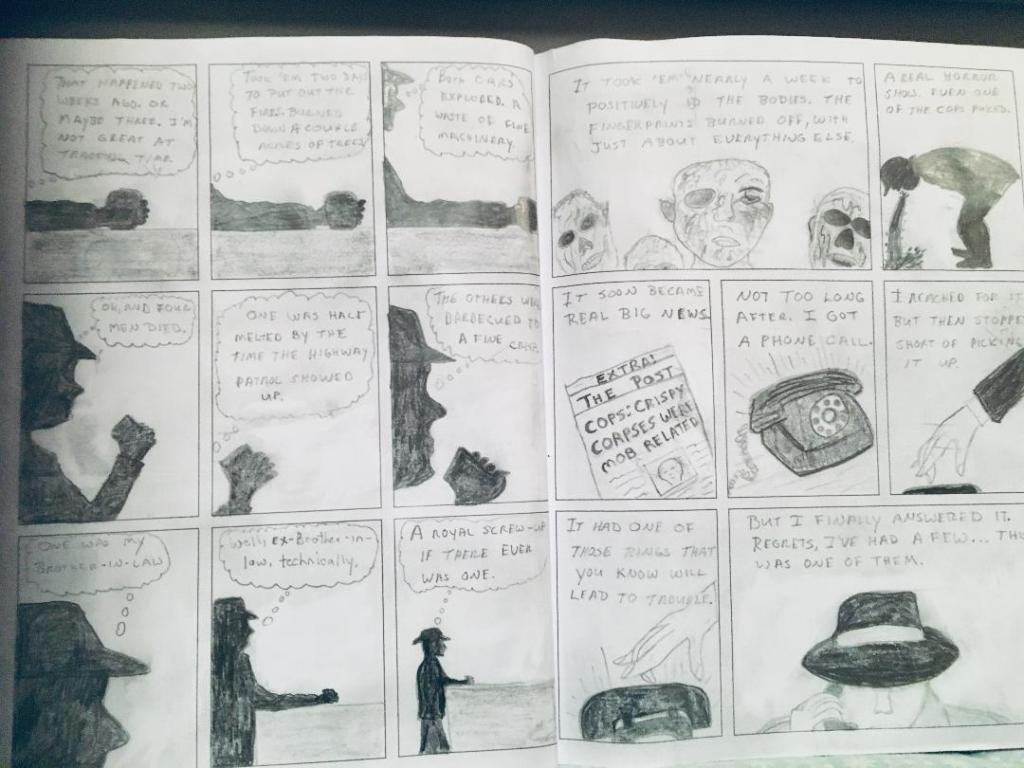 THAT HAPPENED TWO
WEEKS AGO. OR
MAYBE THREE. I'M
NOT GREAT AT
TRACKING TIME
TOOK 'EM TWO DAYS
TO PUT OUT THE
FIRES. BURNED
DOWN A COUPLE
ACRES OF TREES
BOTH CARS
EXPLODED. A
WASTE OF FINE
MACHINERY.
OH, AND FOUR
MEN DIED.
ONE WAS HALF
MELTED BY THE
TIME THE HIGHWAY
PATROL SHOWED
UP.
THE OTHERS WERE
BARBECUED TO
A FINE CRISP.
ONE WAS MY
BROTHER-IN-LAW
Well, EX-Brother-in-
law, technically.
A ROYAL SCREW-UP
IF THERE EVER
WAS ONE.
IT TOOK 'EM NEARLY A WEEK TO
POSITIVELY ID THE BODIES. THE
FINGERPRINTS BURNED OFF, WITH
JUST ABOUT EVERYTHING ELSE.
A REAL HORROR
SHOW. EVEN ONE
OF THE COPS PUKED.
IT SOON BECAME
REAL BIG NEWS.
EXTRA!
THE POST
COPS: CRISPY
CORPSES WERE
MOB RELATED
NOT TOO LONG
AFTER. I GOT
A PHONE CALL.
I REACHED FOR IT
BUT THEN STOPPED
SHORT OF PICKING
IT UP.
IT HAD ONE OF
THOSE RINGS THAT
YOU KNOW WILL
LEAD TO TROUBLE.
BUT I FINALLY ANSWERED IT.
REGRETS, I'VE HAD A FEW...
WAS ONE OF THEM.